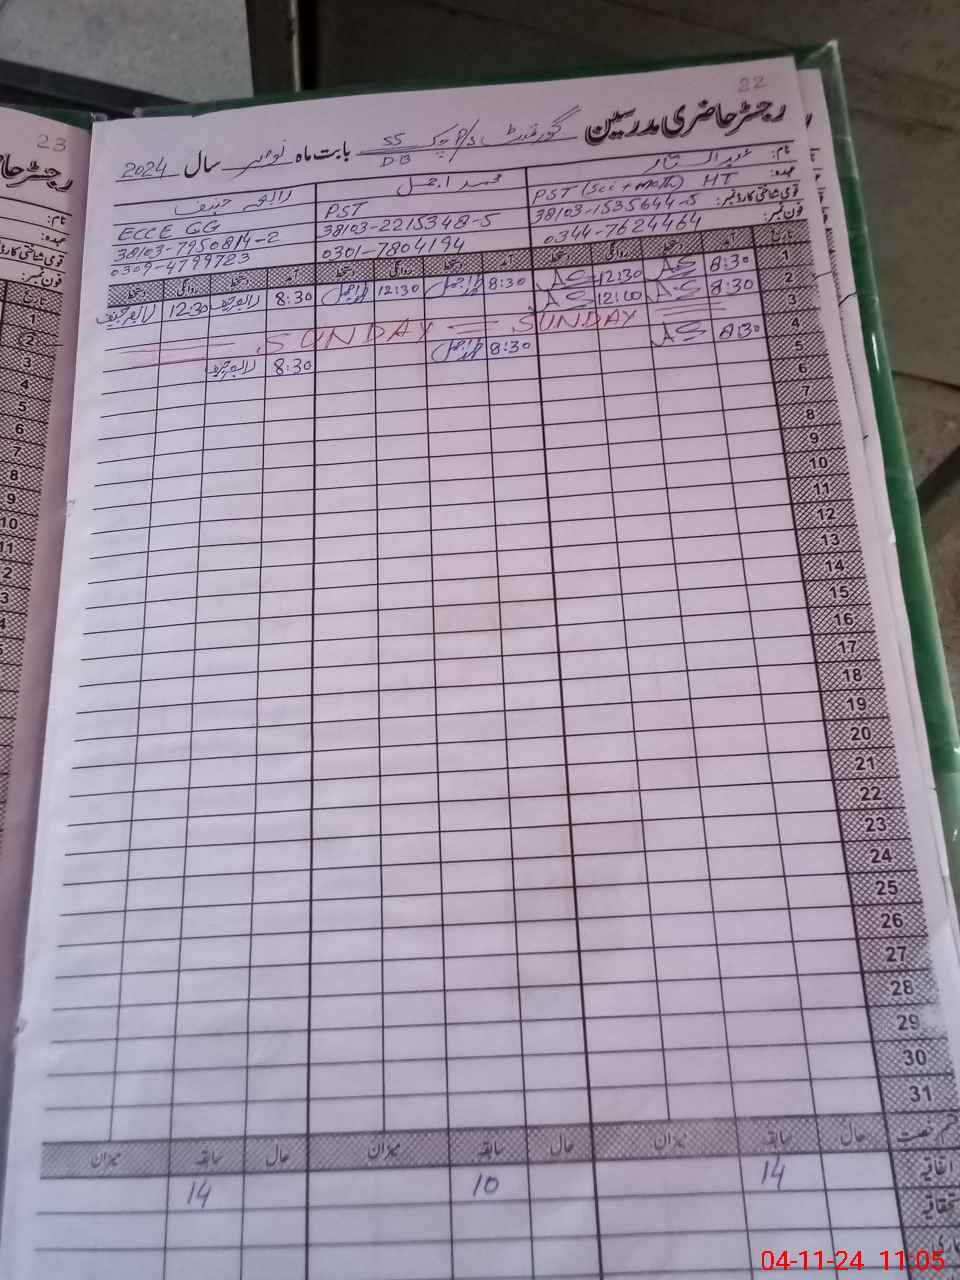 22
رجسٹر حاضری مدرسین گورنمنٹ P/S چک 55 DB بابت ماہ نومبر سال 2024
نام: عبدالستار محمد اجمل رابعہ حنیف
عہدہ: PST (Sci + math) HT PST ECCE GG
قومی شناختی کارڈ نمبر: 38103-1535644-5 38103-2215348-5 38103-7950814-2
فون نمبر: 0344-7624464 0301-7804194 0309-4799723
تاریخ آمد دستخط روانگی دستخط آمد دستخط روانگی دستخط آمد دستخط روانگی دستخط
1 8:30 AS 12:30 AS 8:30 اجمل 12:30 اجمل 8:30 رابعہ حنیف 12:30 رابعہ حنیف
2 8:30 AS 12:10 AS
3 SUNDAY SUNDAY
4 8:30 AS 8:30 اجمل 8:30 رابعہ حنیف
5
6
7
8
9
10
11
12
13
14
15
16
17
18
19
20
21
22
23
24
25
26
27
28
29
30
31
حال سابقہ میزان حال سابقہ میزان حال سابقہ میزان
اتفاقیہ 14 10 14
23
نام:
عہدہ:
قومی شناختی کارڈ
فون نمبر:
تاریخ
1
2
3
4
5
6
7
8
9
10
11
04-11-24 11:05